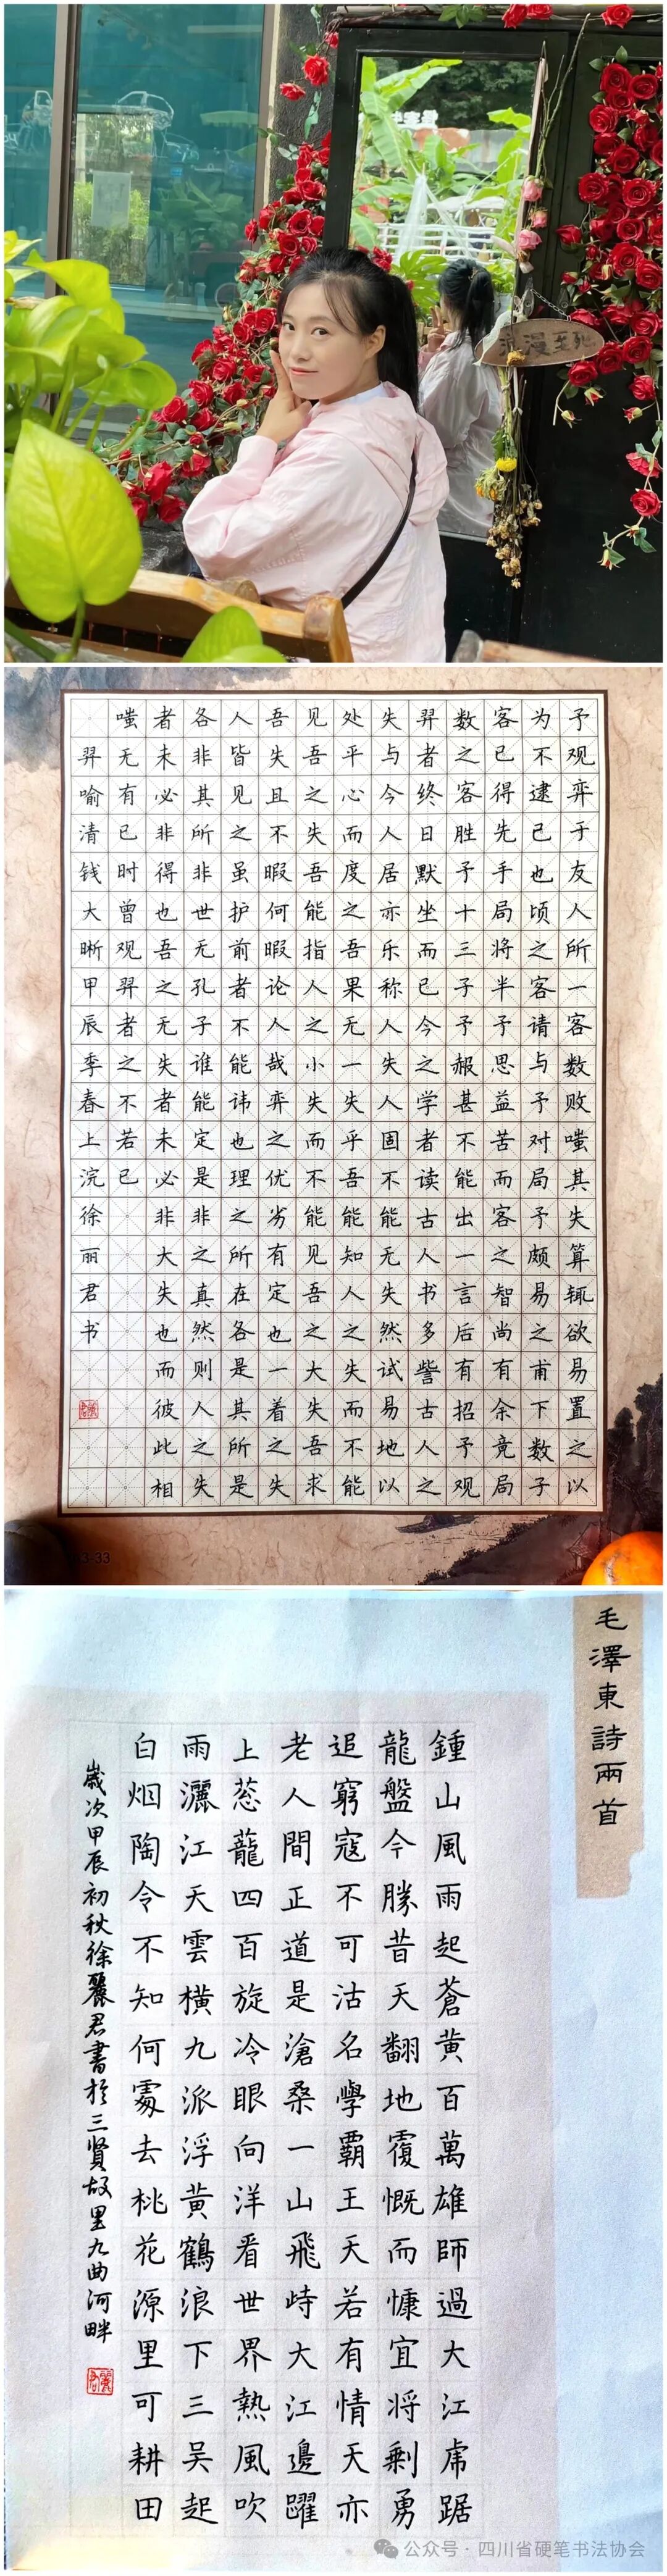 浪漫至死
予观弈于友人所一客数败嗤其失算辄欲易置之以
为不逮己也顷之客请与予对局予颇易之甫下数子
客已得先手局将半予思益苦而客之智尚有余竟局
数之客胜予十三子予赧甚不能出一言后有招予观
羿者终日默坐而已今之学者读古人书多訾古人之
失与今人居亦乐称人失人固不能无失然试易地以
处平心而度之吾果无一失乎吾能知人之失而不能
见吾之失吾能指人之小失而不能见吾之大失吾求
吾失且不暇何暇论人哉弈之优劣有定也一着之失
人皆见之虽护前者不能讳也理之所在各是其所是
各非其所非世无孔子谁能定是非之真然则人之失
者未必非得也吾之无失者未必非大失也而彼此相
嗤无有已时曾观羿者之不若已
羿喻清钱大晰甲辰季春上浣徐丽君书
毛澤東詩兩首
鍾山風雨起蒼黄百萬雄師過大江虎踞
龍盤今勝昔天翻地覆慨而慷宜将剩勇
追窮寇不可沽名學霸王天若有情天亦
老人間正道是滄桑一山飛峙大江邊躍
上葱龍四百旋冷眼向洋看世界熱風吹
雨灑江天雲横九派浮黄鶴浪下三吴起
白烟陶令不知何處去桃花源里可耕田
歲次甲辰初秋徐麗君書於三賢故里九曲河畔
公众号·四川省硬笔书法协会